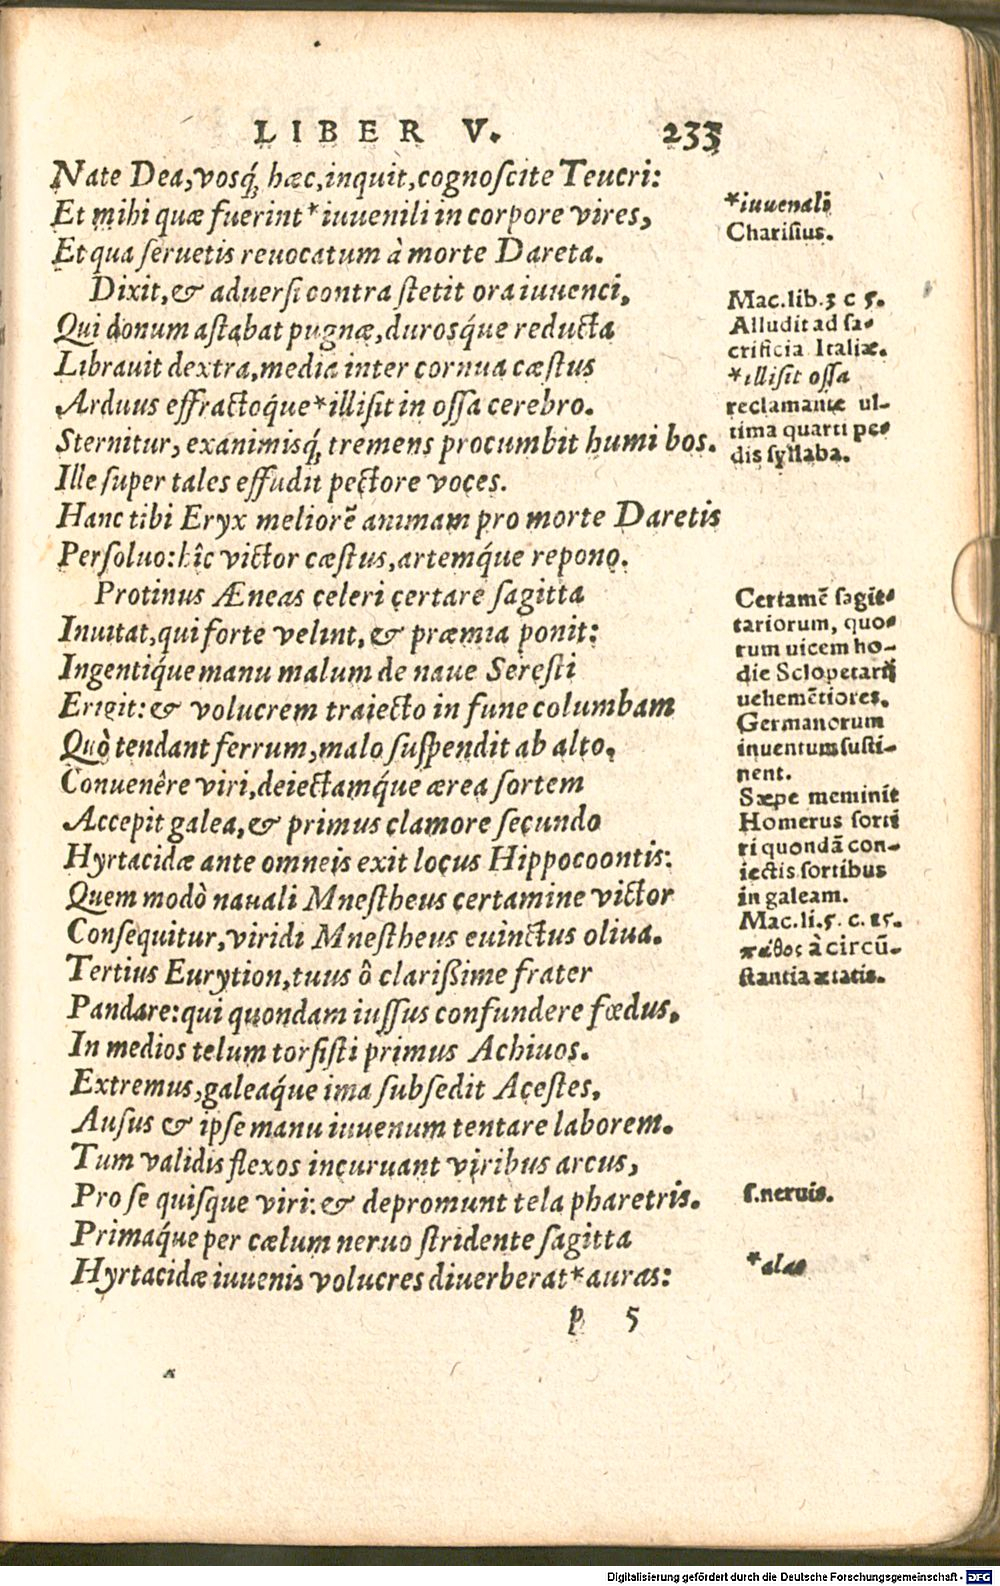 LIBER V. 233
Nate Dea, vosq́; hæc, inquit, cognoscite Teucri:
Et mihi quæ fuerint *iuuenili in corpore vires,
Et qua seruetis reuocatum à morte Dareta.
Dixit, & aduersi contra stetit ora iuuenci,
Qui donum astabat pugnæ, durosq́ue reducta
Librauit dextra, media inter cornua cæstus
Arduus effractoq́ue *illisit in ossa cerebro.
Sternitur, exanimisq́; tremens procumbit humi bos.
Ille super tales effudit pectore voces.
Hanc tibi Eryx meliorē animam pro morte Daretis
Persoluo: hîc victor cæstus, artemq́ue repono.
Protinus Æneas celeri certare sagitta
Inuitat, qui forte velint, & præmia ponit:
Ingentiq́ue manu malum de naue Seresti
Erigit: & volucrem traiecto in fune columbam
Quò tendant ferrum, malo suspendit ab alto.
Conuenêre viri, deiectamq́ue ærea sortem
Accepit galea, & primus clamore secundo
Hyrtacidæ ante omneis exit locus Hippocoontis:
Quem modò nauali Mnestheus certamine victor
Consequitur, viridi Mnestheus euinctus oliua.
Tertius Eurytion, tuus ô clarißime frater
Pandare: qui quondam iussus confundere fœdus,
In medios telum torsisti primus Achiuos.
Extremus, galeaq́ue ima subsedit Acestes,
Ausus & ipse manu iuuenum tentare laborem.
Tum validis flexos incuruant viribus arcus,
Pro se quisque viri: & depromunt tela pharetris.
Primaq́ue per cælum neruo stridente sagitta
Hyrtacidæ iuuenis volucres diuerberat *auras:
p 5
*iuuenali
Charisius.
Mac.lib.3 c 5.
Alludit ad sa-
crificia Italiæ.
*illisit ossa
reclamante ul-
tima quarti pe-
dis syllaba.
Certamē sagit-
tariorum, quo-
rum uicem ho-
die Sclopetarij
uehemētiores,
Germanorum
inuentum susti-
nent.
Sæpe meminit
Homerus sorti
ri quondā con-
iectis sortibus
in galeam.
Mac.li.5. c. 15.
πάθος à circū-
stantia ætatis.
s.neruis.
*alas
Digitalisierung gefördert durch die Deutsche Forschungsgemeinschaft - DFG